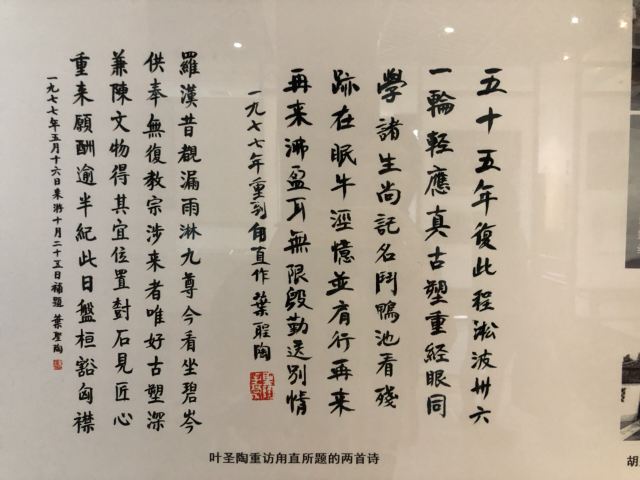 五十五年復此程淞波卅六
一輪輕應真古塑重經眼同
學諸生尚記名鬥鴨池看殘
跡在眠牛涇憶並肩行再来
再来沸盈耳無限殷勤送別情
一九七七年重到甪直作 葉聖陶
羅漢昔觀漏雨淋九尊今看坐碧岑
供奉無復教宗涉来者唯好古塑深
兼陳文物得其宜位置對石見匠心
重来願酬逾半紀此日盤桓豁匈襟
一九七七年五月十六日来游十月二十五日補題 葉聖陶
叶圣陶重访甪直所题的两首诗
胡